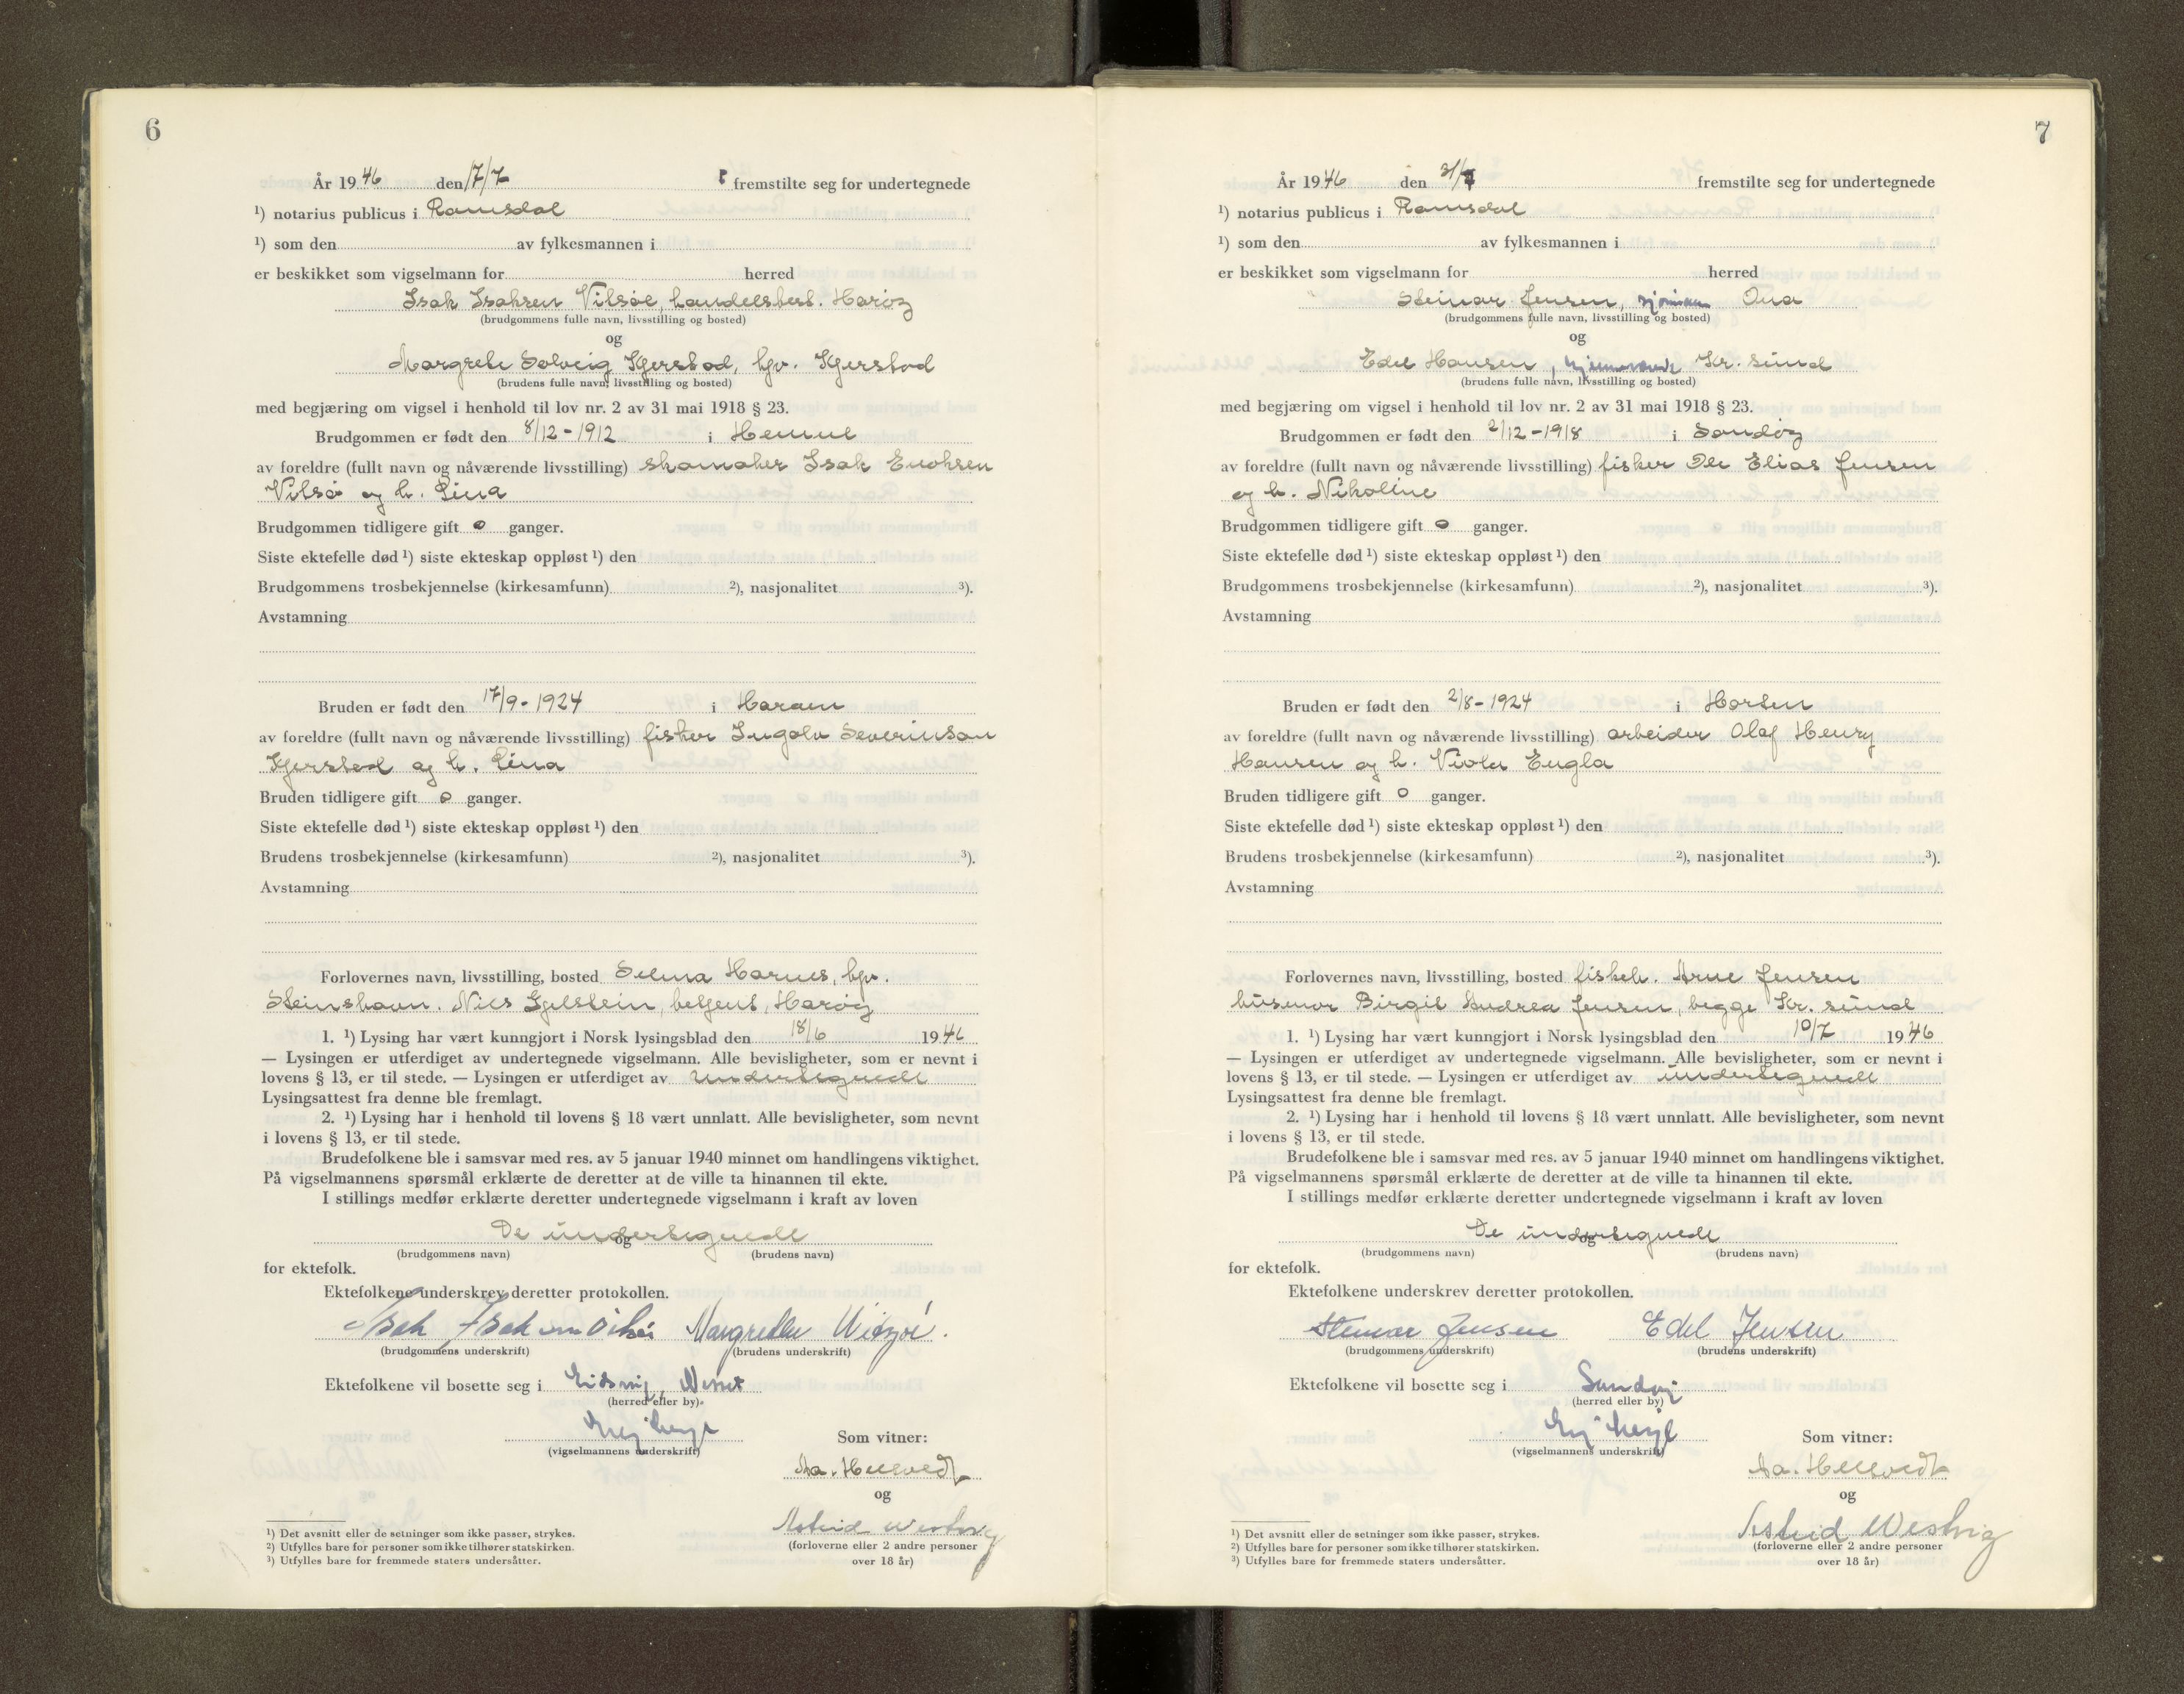 6
År 1946 den 17/7 fremstilte seg for undertegnede
¹) notarius publicus i Romsdal
¹) som den av fylkesmannen i
er beskikket som vigselmann for herred
Isak Isaksen Vilsøe, handelsbest. Harøy
(brudgommens fulle navn, livsstilling og bosted)
og
Margrete Solveig Kjerstad, hjv. Kjerstad
(brudens fulle navn, livsstilling og bosted)
med begjæring om vigsel i henhold til lov nr. 2 av 31 mai 1918 § 23.
Brudgommen er født den 8/12-1912 i Hemne
av foreldre (fullt navn og nåværende livsstilling) skomaker Isak Enoksen
Vilsø og h. Lina
Brudgommen tidligere gift 0 ganger.
Siste ektefelle død ¹) siste ekteskap oppløst ¹) den
Brudgommens trosbekjennelse (kirkesamfunn) ²), nasjonalitet ³).
Avstamning
Bruden er født den 17/9-1924 i Haram
av foreldre (fullt navn og nåværende livsstilling) fisker Ingolv Severinson
Kjerstad og h. Lina
Bruden tidligere gift 0 ganger.
Siste ektefelle død ¹) siste ekteskap oppløst ¹) den
Brudens trosbekjennelse (kirkesamfunn) ²), nasjonalitet ³).
Avstamning
Forlovernes navn, livsstilling, bosted Selma Harnes, hjv.
Steinshavn. Nils Gjelstein, betjent, Harøy
1. ¹) Lysing har vært kunngjort i Norsk lysingsblad den 18/6 1946
— Lysingen er utferdiget av undertegnede vigselmann. Alle bevisligheter, som er nevnt i
lovens § 13, er til stede. — Lysingen er utferdiget av undertegnede
Lysingsattest fra denne ble fremlagt.
2. ¹) Lysing har i henhold til lovens § 18 vært unnlatt. Alle bevisligheter, som nevnt
i lovens § 13, er til stede.
Brudefolkene ble i samsvar med res. av 5 januar 1940 minnet om handlingens viktighet.
På vigselmannens spørsmål erklærte de deretter at de ville ta hinannen til ekte.
I stillings medfør erklærte deretter undertegnede vigselmann i kraft av loven
De undertegnede
og
(brudgommens navn) (brudens navn)
for ektefolk.
Ektefolkene underskrev deretter protokollen.
Isak Margrethe
(brudgommens underskrift) (brudens underskrift)
Ektefolkene vil bosette seg i Eidsvåg, Nesset
(herred eller by).
(vigselmannens underskrift)
Som vitner:
Aa. Hellvedt
og
Astrid Westvig
(forloverne eller 2 andre personer
over 18 år)
¹) Det avsnitt eller de setninger som ikke passer, strykes.
²) Utfylles bare for personer som ikke tilhører statskirken.
³) Utfylles bare for fremmede staters undersåtter.
7
År 1946 den 31/7 fremstilte seg for undertegnede
¹) notarius publicus i Romsdal
¹) som den av fylkesmannen i
er beskikket som vigselmann for herred
Steinar Jensen, sjømann Ona
(brudgommens fulle navn, livsstilling og bosted)
og
Edel Hansen, hjemmevær. Kr. sund
(brudens fulle navn, livsstilling og bosted)
med begjæring om vigsel i henhold til lov nr. 2 av 31 mai 1918 § 23.
Brudgommen er født den 2/12-1918 i Sandøy
av foreldre (fullt navn og nåværende livsstilling) fisker Ole Elias Jensen
og h. Nikoline
Brudgommen tidligere gift 0 ganger.
Siste ektefelle død ¹) siste ekteskap oppløst ¹) den
Brudgommens trosbekjennelse (kirkesamfunn) ²), nasjonalitet ³).
Avstamning
Bruden er født den 2/8-1924 i Horten
av foreldre (fullt navn og nåværende livsstilling) arbeider Olaf Henry
Hansen og h. Viola Engla
Bruden tidligere gift 0 ganger.
Siste ektefelle død ¹) siste ekteskap oppløst ¹) den
Brudens trosbekjennelse (kirkesamfunn) ²), nasjonalitet ³).
Avstamning
Forlovernes navn, livsstilling, bosted fiskeh. Arne Jensen
husmor Birgit Andrea Jensen, begge Kr. sund
1. ¹) Lysing har vært kunngjort i Norsk lysingsblad den 10/7 1946
— Lysingen er utferdiget av undertegnede vigselmann. Alle bevisligheter, som er nevnt i
lovens § 13, er til stede. — Lysingen er utferdiget av undertegnede
Lysingsattest fra denne ble fremlagt.
2. ¹) Lysing har i henhold til lovens § 18 vært unnlatt. Alle bevisligheter, som nevnt
i lovens § 13, er til stede.
Brudefolkene ble i samsvar med res. av 5 januar 1940 minnet om handlingens viktighet.
På vigselmannens spørsmål erklærte de deretter at de ville ta hinannen til ekte.
I stillings medfør erklærte deretter undertegnede vigselmann i kraft av loven
De undertegnede
og
(brudgommens navn) (brudens navn)
for ektefolk.
Ektefolkene underskrev deretter protokollen.
Steinar Jensen Edel Jensen
(brudgommens underskrift) (brudens underskrift)
Ektefolkene vil bosette seg i Sandøy
(herred eller by)
(vigselmannens underskrift)
Som vitner:
Aa. Hellvedt
og
Astrid Westvig
(forloverne eller 2 andre personer
over 18 år)
¹) Det avsnitt eller de setninger som ikke passer, strykes.
²) Utfylles bare for personer som ikke tilhører statskirken.
³) Utfylles bare for fremmede staters undersåtter.